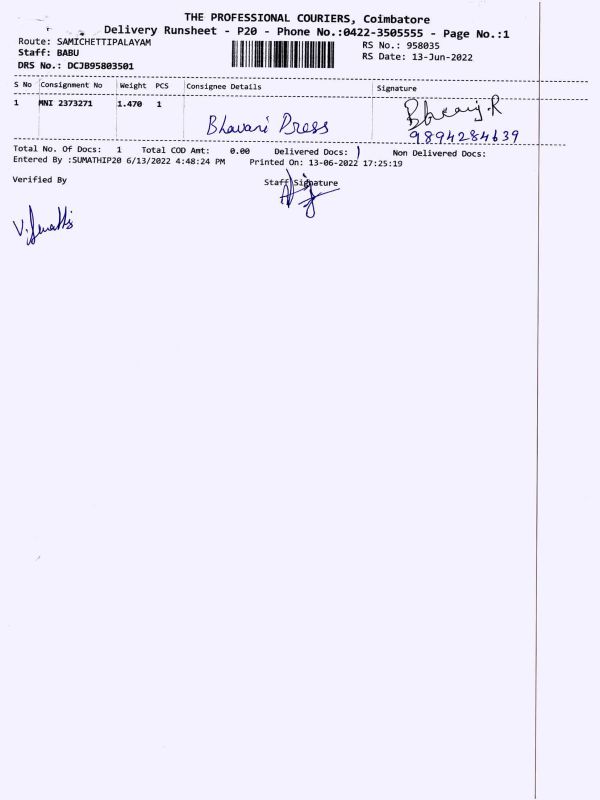 THE PROFESSIONAL COURIERS, Coimbatore
Delivery Runsheet - P20 - Phone No.:0422-3505555 - Page No.:1
Route: SAMICHETTIPALAYAM
RS No.: 958035
Staff: BABU
RS Date: 13-Jun-2022
DRS No.: DCJB95803501
S No Consignment No Weight PCS Consignee Details Signature
1 MNI 2373271 1.470 1
Bhavani Press
9894284639
Total No. Of Docs: 1 Total COD Amt: 0.00 Delivered Docs: 1 Non Delivered Docs:
Entered By :SUMATHIP20 6/13/2022 4:48:24 PM Printed On: 13-06-2022 17:25:19
Verified By Staff Signature